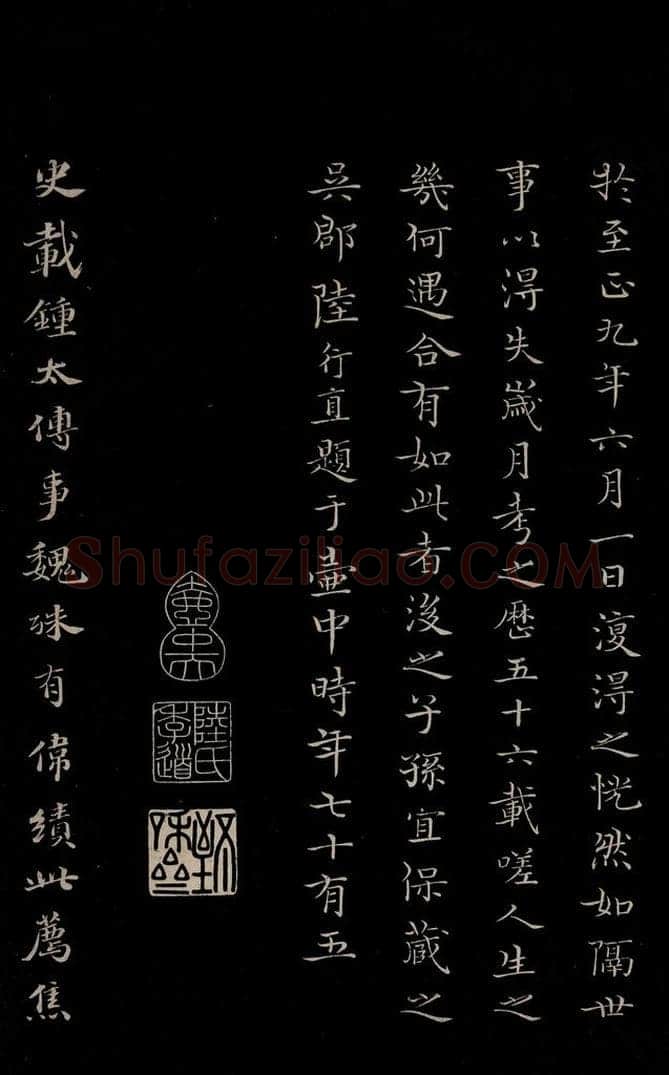 於至正九年六月一日復得之恍然如隔世
事以得失歲月考之歷五十六載嗟人生之
幾何遇合有如此者後之子孫宜保藏之
吳郡陸行直題于壺中時年七十有五
壺中
陸氏季道
史載鍾太傅事魏殊有偉績此薦焦
Shufaziliao.COM